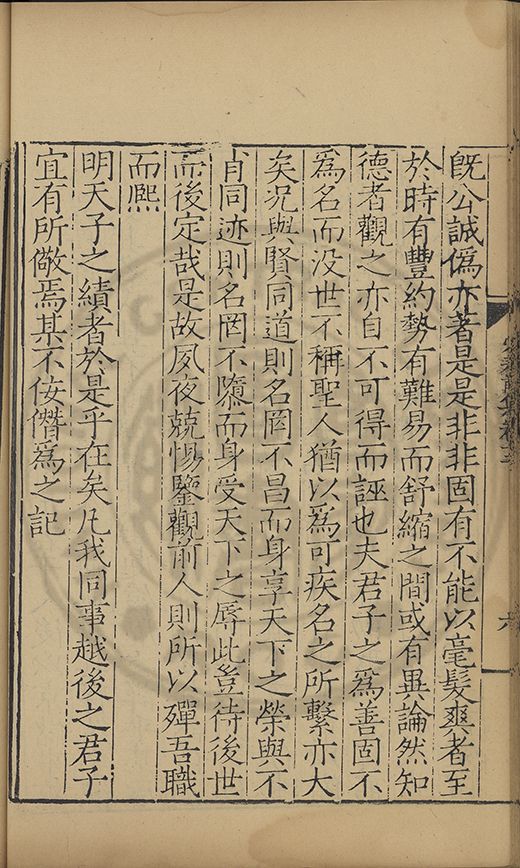 既公誠僞亦著是是非非固有不能以毫髮爽者至
於時有豐約勢有難易而舒縮之間或有異論然知
德者觀之亦自不可得而誣也夫君子之爲善固不
爲名而没世不稱聖人猶以爲可疾名之所繫亦大
矣况與賢同道則名罔不昌而身享天下之榮與不
肖同迹則名罔不隳而身受天下之辱此豈待後世
而後定哉是故夙夜兢惕鑒觀前人則所以殫吾職
而熙
明天子之績者於是乎在矣凡我同事越後之君子
宜有所儆焉某不佞僭爲之記
六